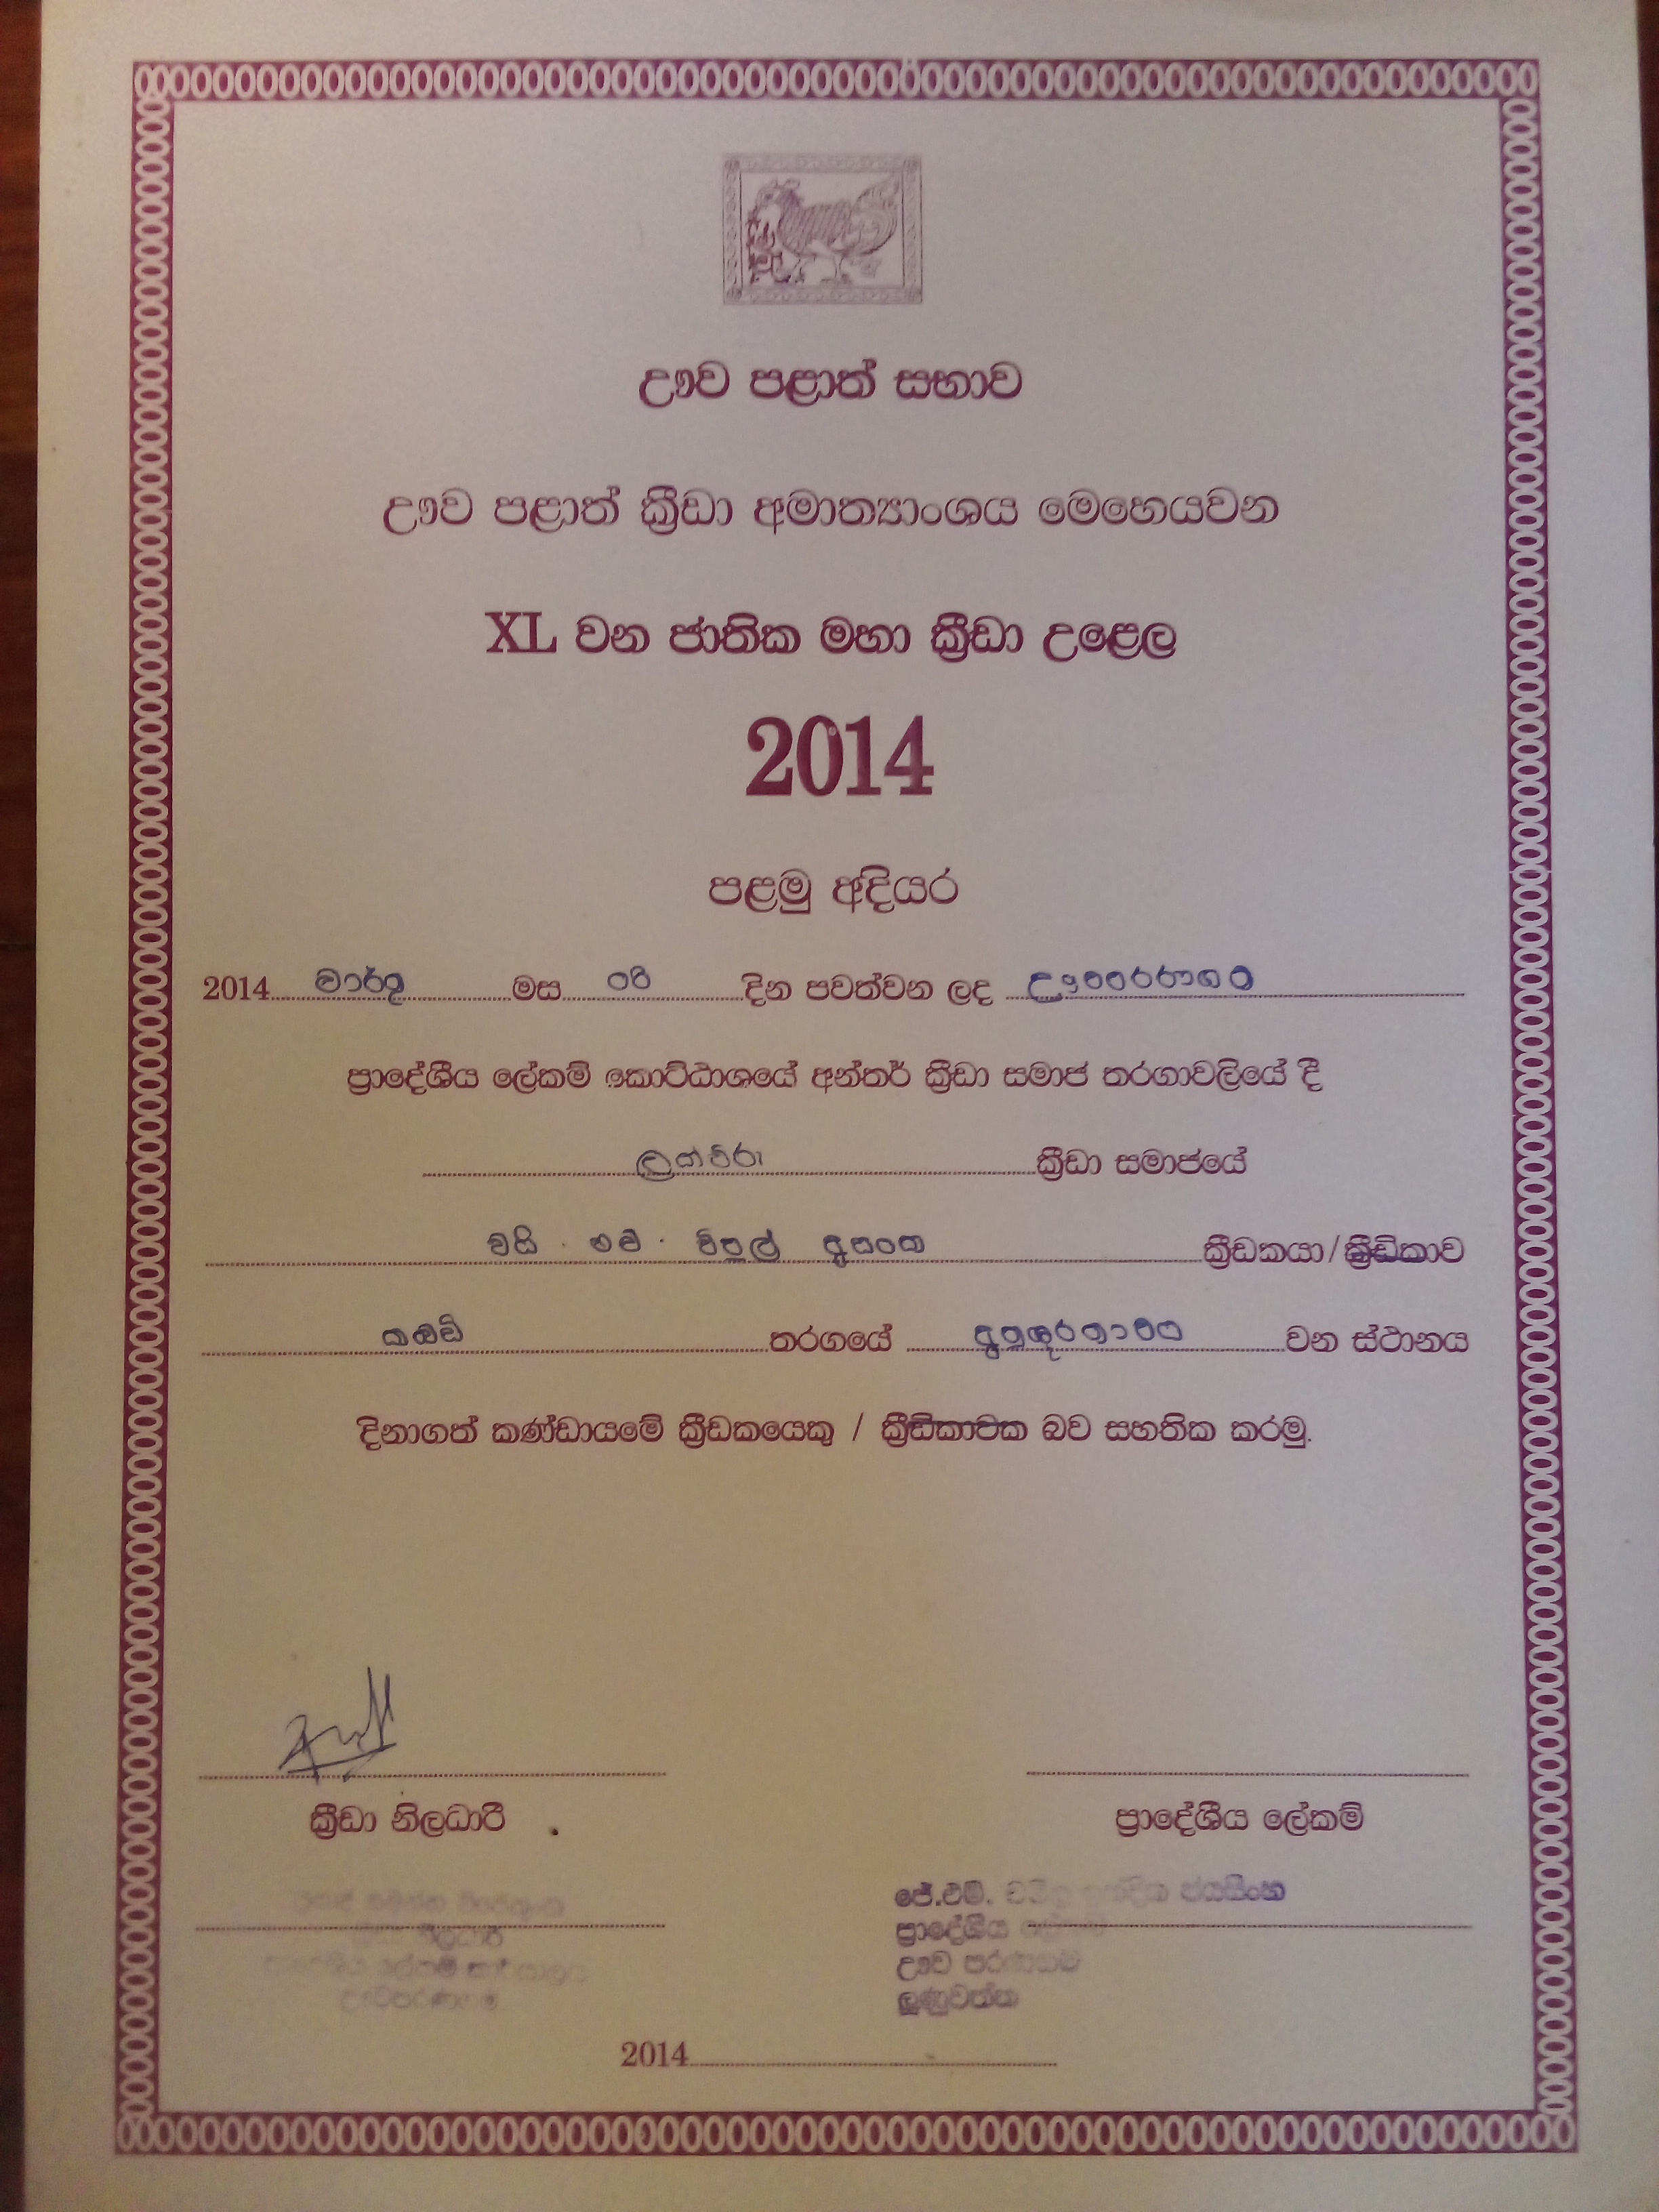 ඌව පළාත් සභාව
ඌව පළාත් ක්‍රීඩා අමාත්‍යාංශය මෙහෙයවන
XL වන ජාතික මහා ක්‍රීඩා උළෙල
2014
පළමු අදියර
2014 මාර්තු මස දින පවත්වන ලද ඌවපරණගම
ප්‍රාදේශීය ලේකම් කොට්ඨාශයේ අන්තර් ක්‍රීඩා සමාජ තරගාවලියේ දී
ලක්විරු ක්‍රීඩා සමාජයේ
විපුල් අසංක ක්‍රීඩකයා/ක්‍රීඩිකාව
කබඩි තරගයේ අනුශූරතාවය වන ස්ථානය
දිනාගත් කණ්ඩායමේ ක්‍රීඩකයෙකු / ක්‍රීඩිකාවක බව සහතික කරමු.
ක්‍රීඩා නිලධාරී
ප්‍රාදේශීය ලේකම්
ජේ.එම්. ජයසිංහ
ප්‍රාදේශීය
ඌව පරණගම
ලුණුවත්ත
2014